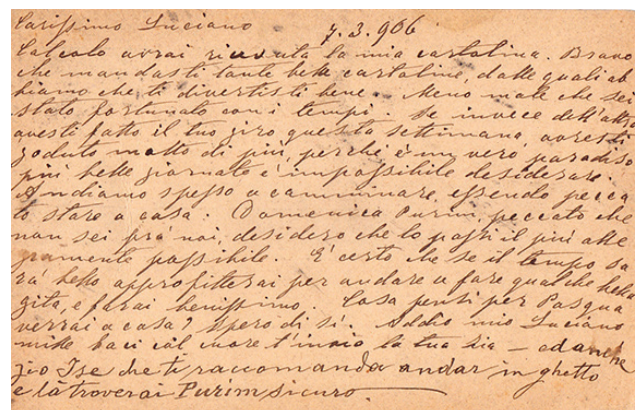 Carissimo Luciano 7.3.906
Calcolo avrai ricevuta la mia cartolina. Bravo
che mandasti tante belle cartoline, dalle quali ab
biamo che ti divertisti bene. Meno male che sei
stato fortunato con i tempi. Se invece dell'altra
avesti fatto il tuo giro questa settimana, avresti
goduto molto di più, perchè è un vero paradiso
più belle giornate è impossibile desiderare.
Andiamo spesso a camminare, essendo pecca
to stare a casa. Domenica Purim, peccato che
non sei frà noi, desidero che lo passi il più alle
gramente possibile. E' certo che se il tempo sa
rà bello approfitterai per andare a fare qualche bella
gita, e farai benissimo. Cosa pensi per Pasqua
verrai a casa? Spero di sì. Addio mio Luciano
mille baci col cuore t'invio la tua zia — ed anche
zio Ise che ti raccomanda andar in ghetto
e là troverai Purim sicuro.